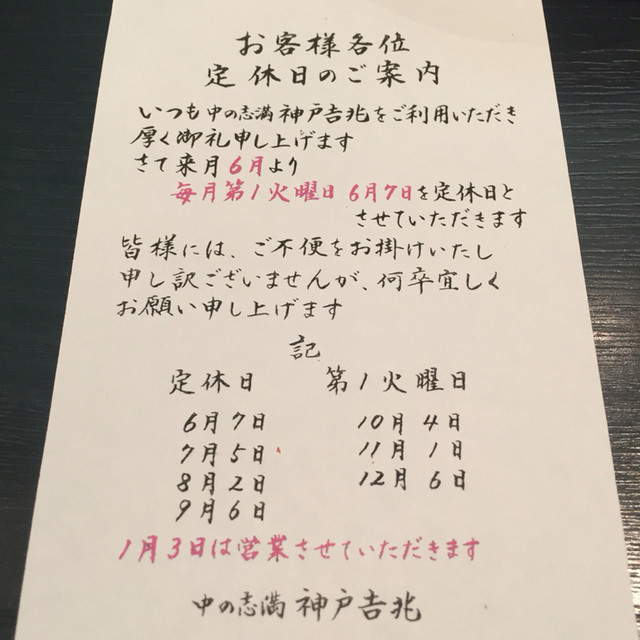 お客様各位
定休日のご案内
いつも中の志満神戸吉兆をご利用いただき
厚く御礼申し上げます
さて来月6月より
毎月第1火曜日6月7日を定休日と
させていただきます
皆様には、ご不便をお掛けいたし
申し訳ございませんが、何卒宜しく
お願い申し上げます
記
定休日 第1火曜日
6月7日 10月4日
7月5日 11月1日
8月2日 12月6日
9月6日
1月3日は営業させていただきます
中の志満 神戸吉兆